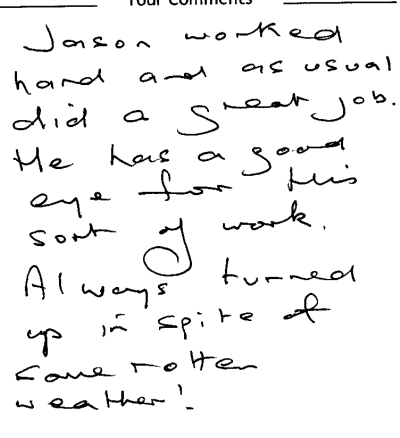 Your Comments
Jason worked
hard and as usual
did a great job.
He has a good
eye for this
sort of work.
Always turned
up in spite of
some rotten
weather!